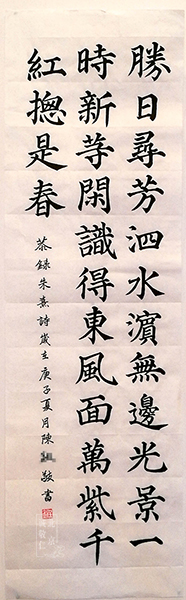 勝日尋芳泗水濱無邊光景一
時新等閑識得東風面萬紫千
紅摠是春
恭錄朱熹詩歲在庚子夏月陳敬書